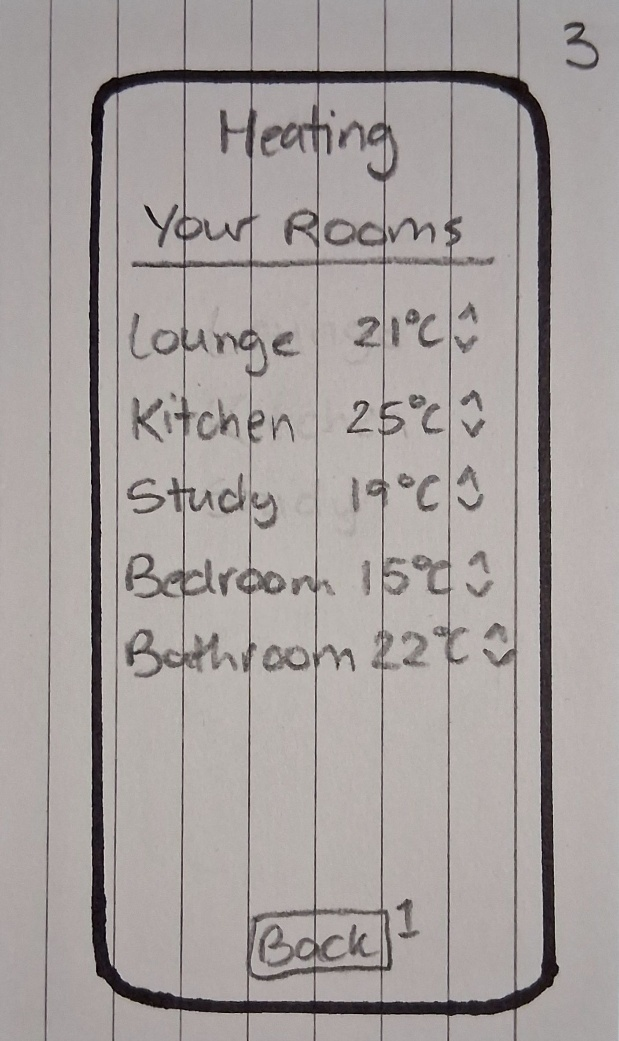 3
Heating
Your Rooms
Lounge 21°C
Kitchen 25°C
Study 19°C
Bedroom 15°C
Bathroom 22°C
Back 1